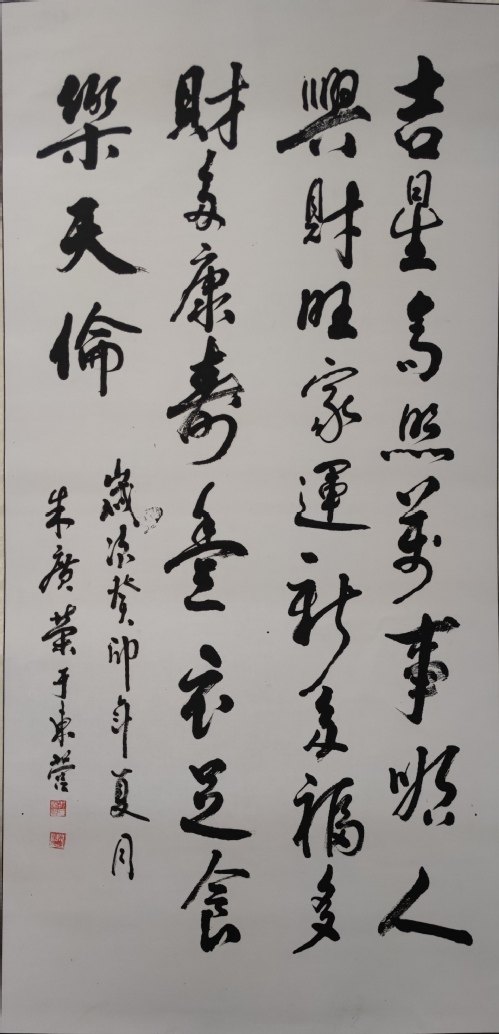 吉星高照萬事順人
興財旺家運新多福多
財多康壽豐衣足食
樂天倫
歲次癸卯年夏月
朱廣榮于東營